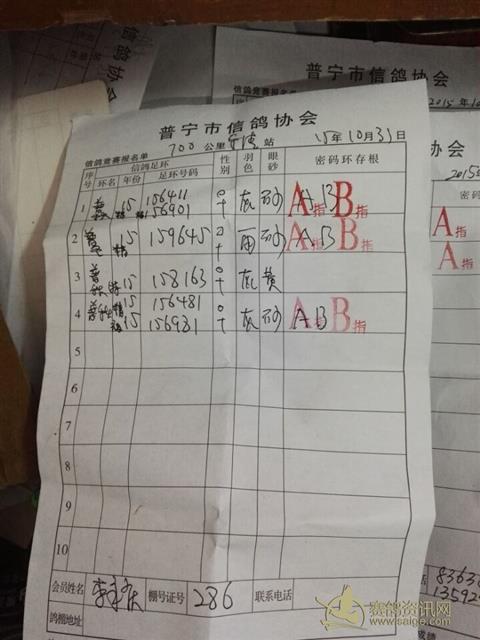 信鸽协会
普宁市信鸽协会
信鸽竞赛报名单
2015年10
普宁市信鸽协会
信鸽竞赛报名单 700公里 站 15年10月31日
序号 信鸽足环 性别 羽色 眼砂 密码环存根
环名 年份 足环号码
1 普 15 156411 ♀ 灰 砂 A指 B指
156901
2 普 15 159645 ♀ 雨 砂 A指 B指
3 普 15 158163 ♀ 灰 黄
4 普 15 156481 ♀ 灰 砂 A指 B指
15 156931
5
6
7
8
9
10
会员姓名 李 棚号证号 286 联系电话
鸽棚地址
2015
A指
A指
8363
13592
赛鸽资讯网
www.saige.com